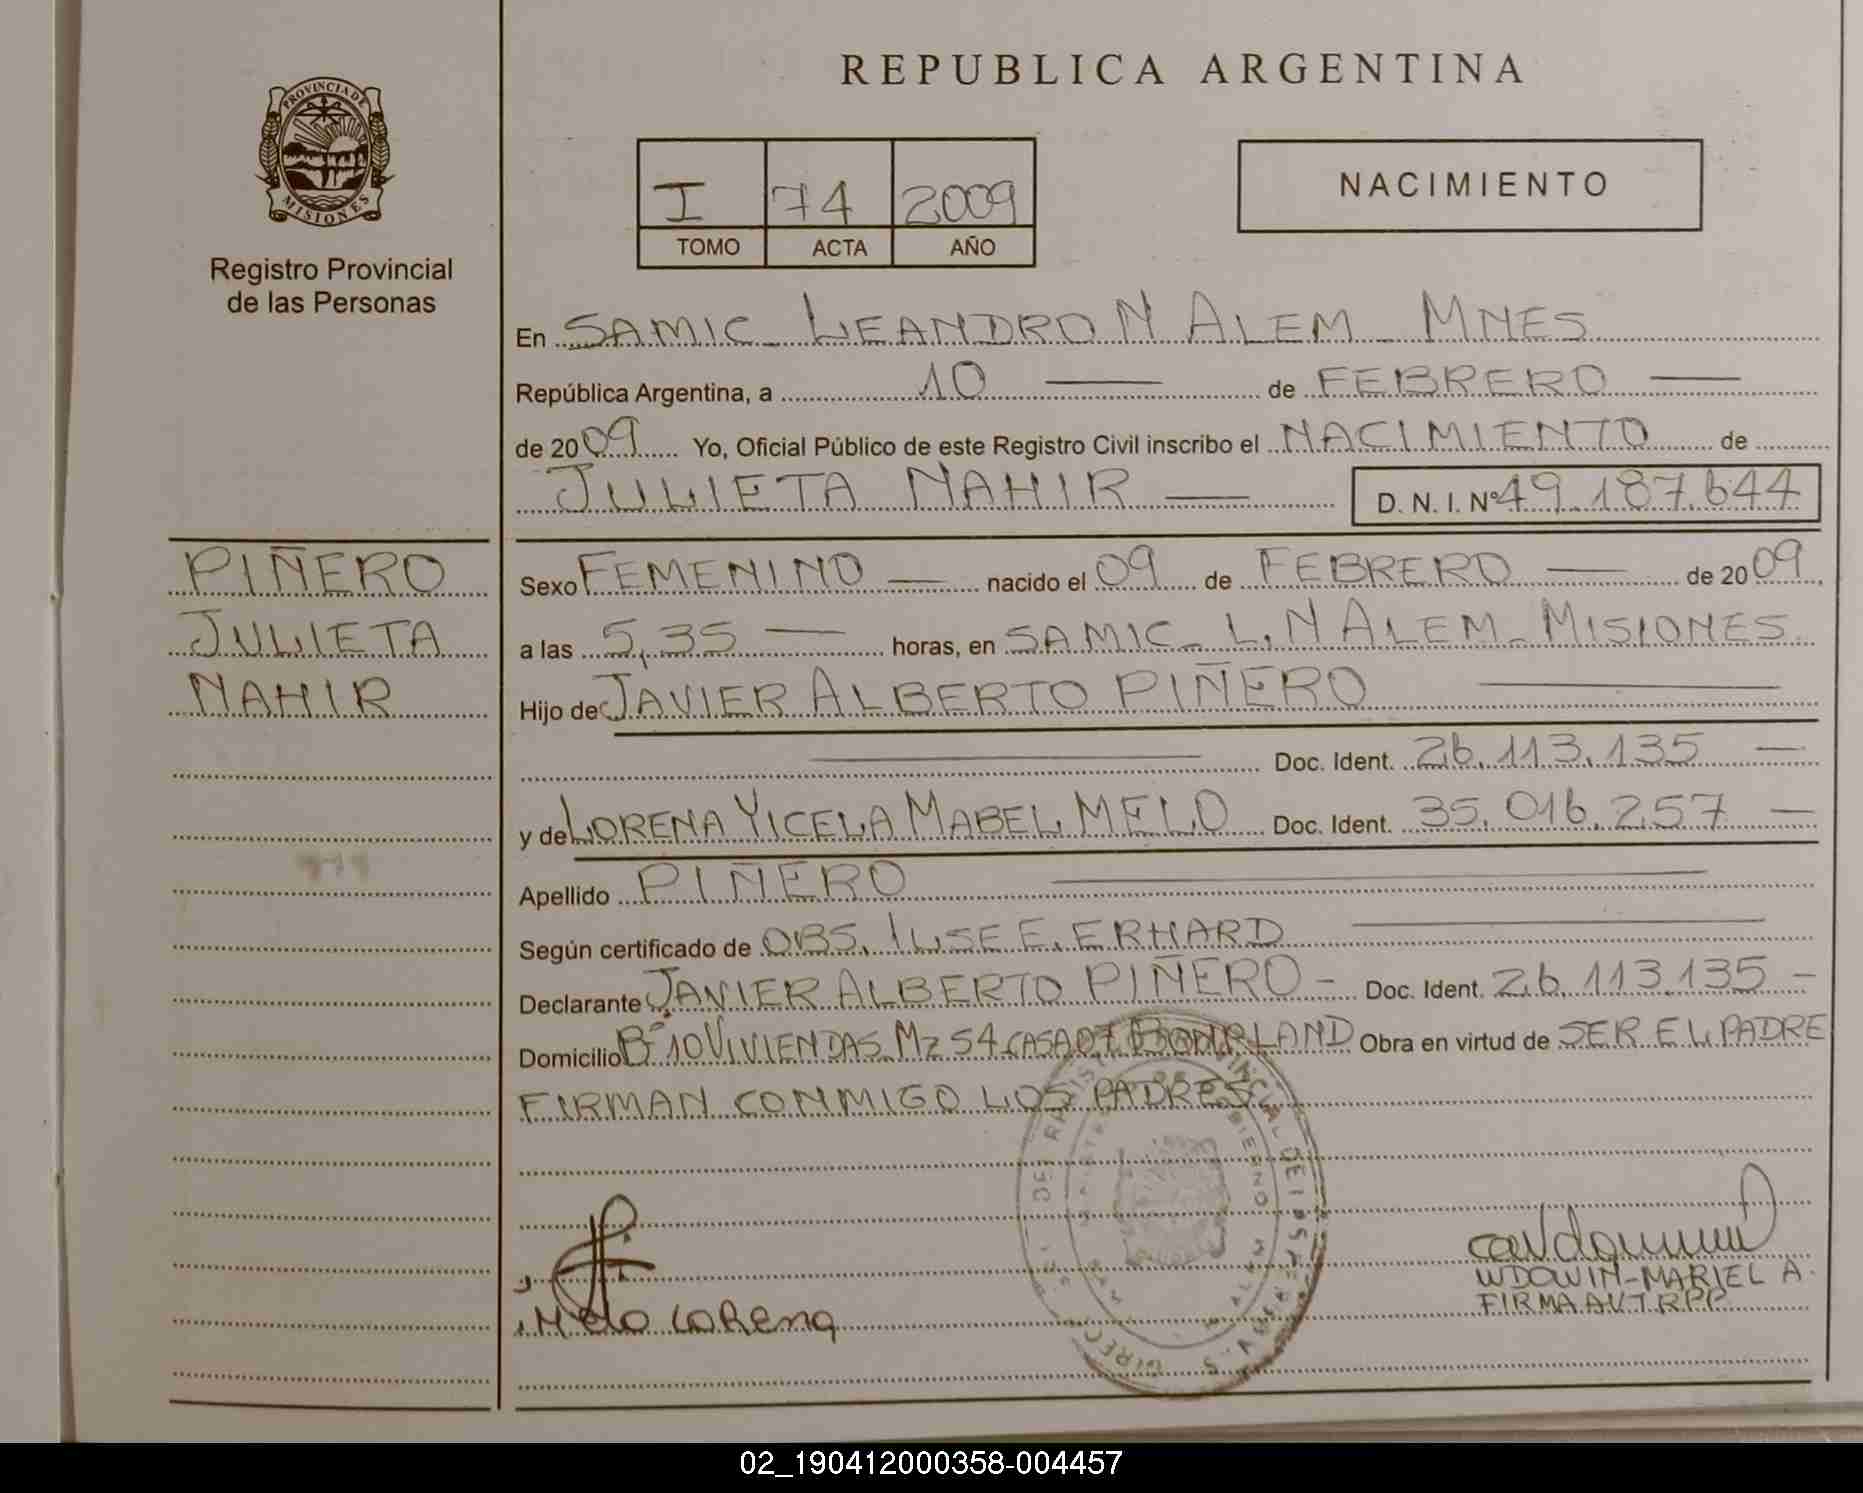 REPUBLICA ARGENTINA
PROVINCIA DE
MISIONES
Registro Provincial
de las Personas
I 74 2009
TOMO ACTA AÑO
NACIMIENTO
En SAMIC - LEANDRO N ALEM - MNES
República Argentina, a 10 — de FEBRERO —
de 2009 Yo, Oficial Público de este Registro Civil inscribo el NACIMIENTO de
JULIETA NAHIR — D. N. I. Nº 49.187.644
PIÑERO
JULIETA
NAHIR
Sexo FEMENINO — nacido el 09 de FEBRERO — de 2009,
a las 5,35 — horas, en SAMIC - L. N ALEM - MISIONES
Hijo de JAVIER ALBERTO PIÑERO —
— Doc. Ident. 26.113.135 —
y de LORENA YICELA MABEL MELO Doc. Ident. 35.016.257 —
Apellido PIÑERO —
Según certificado de OBS. ILSE E. ERHARD —
Declarante JAVIER ALBERTO PIÑERO - Doc. Ident. 26.113.135 -
Domicilio Bº 10 VIVIENDAS Mz 54 CASA 07 BONPLAND Obra en virtud de SER EL PADRE
FIRMAN CONMIGO LOS PADRES
Melo Lorena
WDOWIN-MARIEL A.
FIRMA AUT RPP
02_190412000358-004457